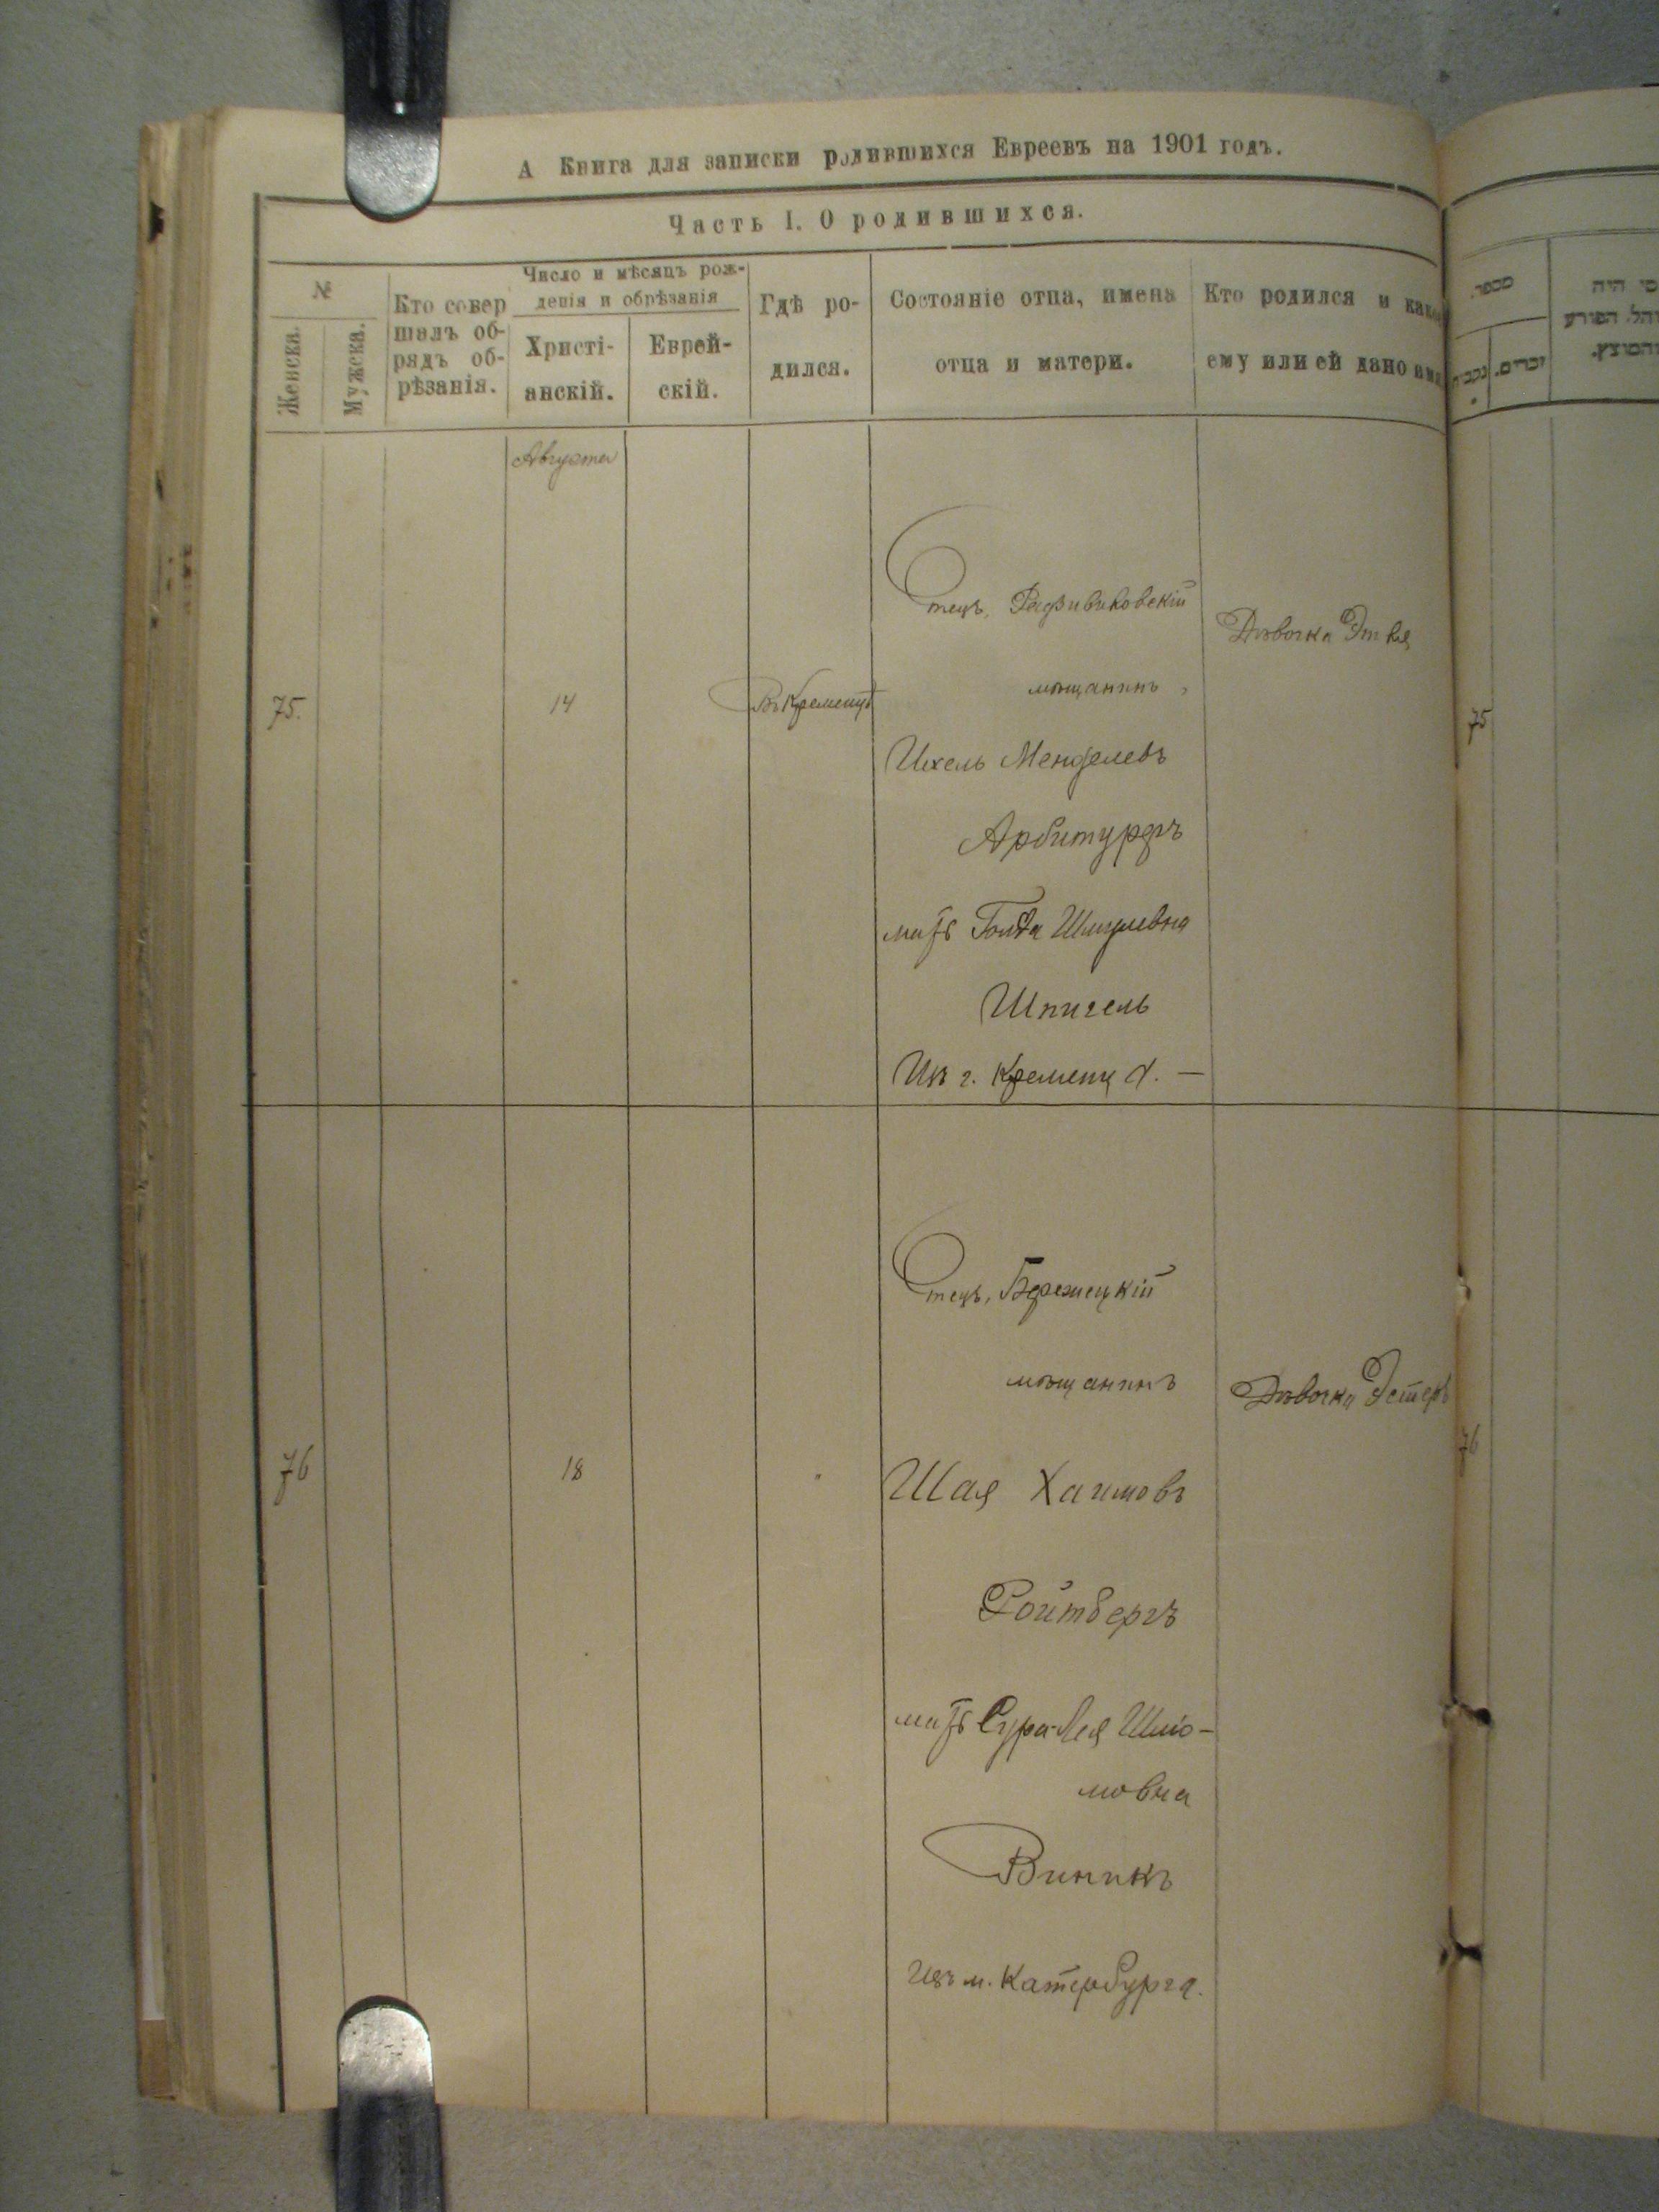 А Книга для записки родившихся Евреевъ на 1901 годъ.
Часть I. О родившихся.
№
Женска.
Мужска.
Кто совер
шалъ об-
рядъ об-
рѣзанія.
Число и мѣсяцъ рож-
денія и обрѣзанія
Христі-
анскій.
Еврей-
скій.
Гдѣ ро-
дился.
Состояніе отца, имена
отца и матери.
Кто родился и како
ему или ей дано имя
Августа
75.
14
Въ Кременцѣ
Отецъ,
мѣщанинъ,
Ихель Менделевъ
Арбитурдъ
мать Голда Шмулевна
Шпигель
Изъ г. Кременца. —
Дѣвочка Этля
75
76
18
"
Отецъ, Бережецкій
мѣщанинъ
Шая Хаимовъ
Ройтбергъ
мать Сура-Лея Шліо-
мовна
Виникъ
Изъ м. Катербурга.
Дѣвочка Эстеръ
76
מספר.
נקבית
זכרים.
מי היה
והמוצץ.